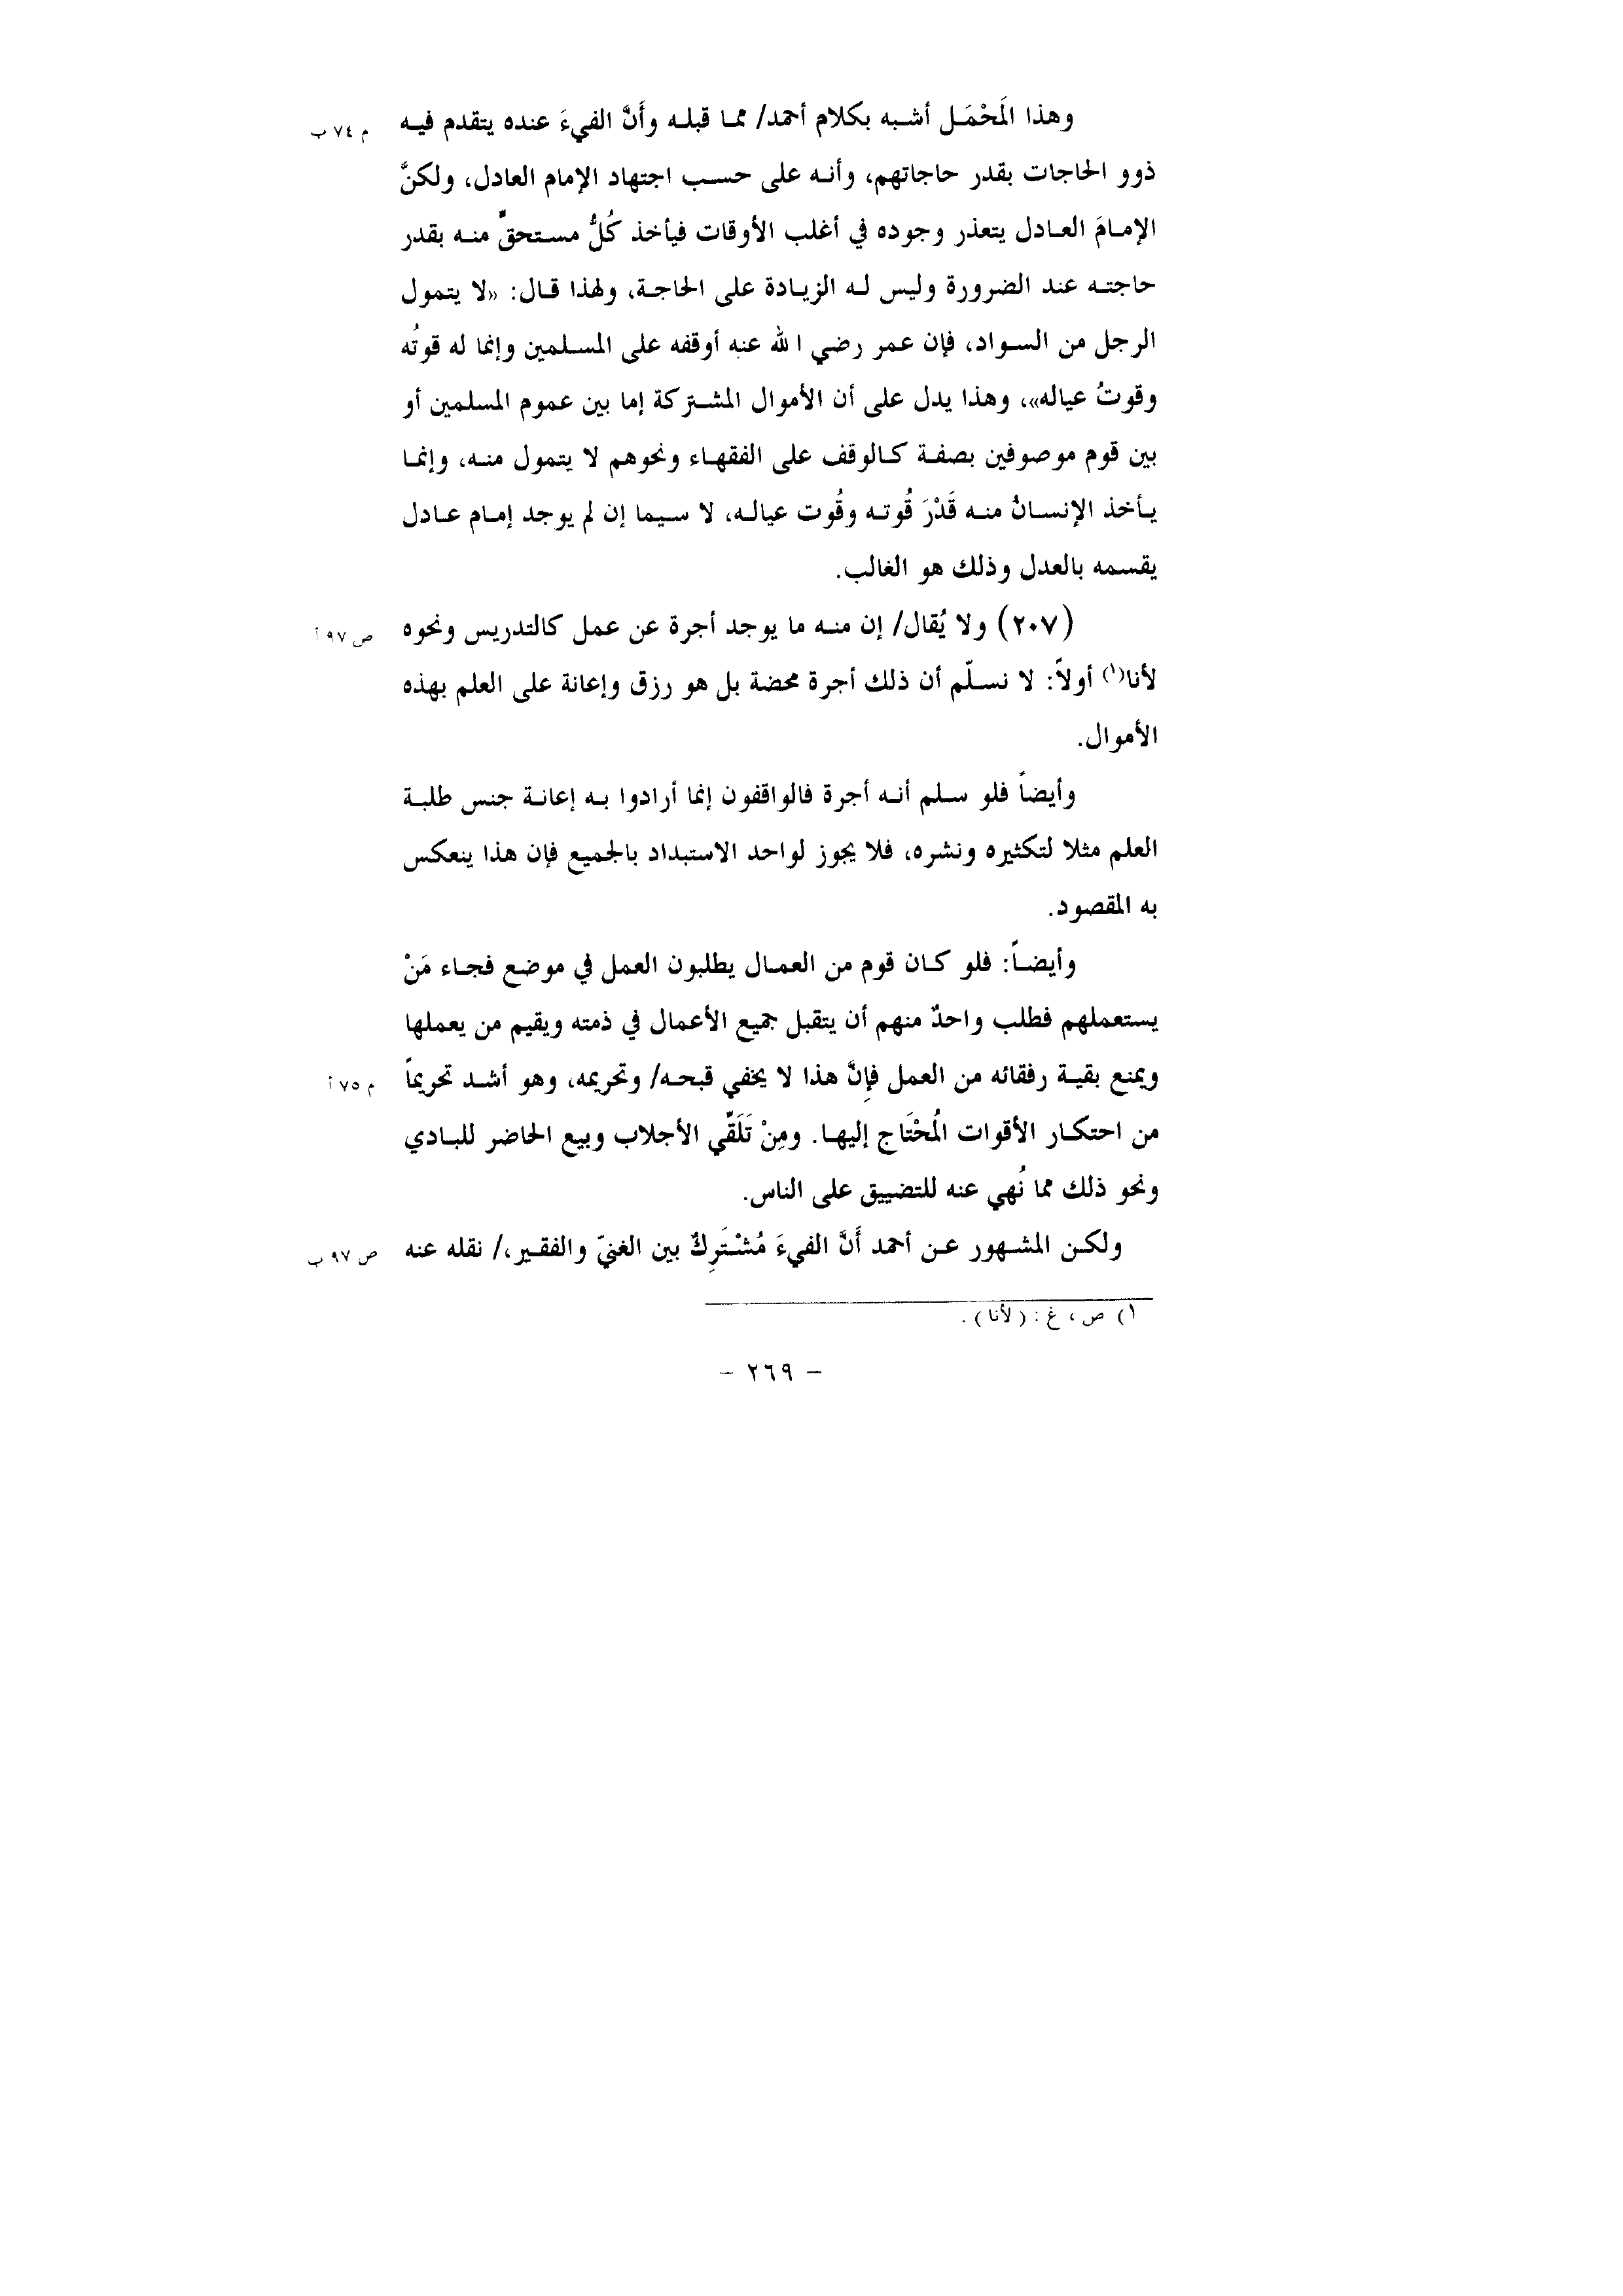 وهذا المَحْمَـل أشـبه بكلام أحمد/ ممـا قبلـه وأَنَّ الفيءَ عنده يتقدم فيـه م ٧٤ ب
ذوو الحاجات بقدر حاجاتهم، وأنـه على حسـب اجتهاد الإمام العادل، ولكنَّ
الإمـامَ العـادل يتعذر وجوده في أغلب الأوقات فيأخذ كُلُّ مسـتحقٍّ منـه بقدر
حاجتـه عند الضرورة وليس لـه الزيـادة على الحاجـة، ولهذا قـال: «لا يتمول
الرجل من السـواد، فإن عمر رضي الله عنه أوقفه على المسـلمين وإنما له قوتُه
وقوتُ عياله»، وهذا يدل على أن الأموال المشـتركة إما بين عموم المسلمين أو
بين قوم موصوفين بصفـة كـالوقف على الفقهـاء ونحوهم لا يتمول منـه، وإنمـا
يـأخذ الإنسـانُ منـه قَدْرَ قُوتـه وقُوت عيالـه، لا سـيما إن لم يوجد إمـام عـادل
يقسمه بالعدل وذلك هو الغالب.
(٢٠٧) ولا يُقال/ إن منـه ما يوجد أجرة عن عمل كالتدريس ونحوه ص ٩٧ أ
لأنا(١) أولاً: لا نسـلّم أن ذلك أجرة محضة بل هو رزق وإعانة على العلم بهذه
الأموال.
وأيضاً فلو سـلم أنـه أجرة فالواقفون إنما أرادوا بـه إعانـة جنس طلبـة
العلم مثلا لتكثيره ونشره، فلا يجوز لواحد الاستبداد بالجميع فإن هذا ينعكس
به المقصود.
وأيضـاً: فلو كـان قوم من العمـال يطلبون العمل في موضع فجـاء مَنْ
يستعملهم فطلب واحدٌ منهم أن يتقبل جميع الأعمال في ذمته ويقيم من يعملها
ويمنع بقيـة رفقائه من العمل فإِنَّ هذا لا يخفي قبحـه/ وتحريمه، وهو أشـد تحريماً م ٧٥ أ
من احتكـار الأقوات المُحْتَاج إليهـا. ومِنْ تَلَقِّي الأجلاب وبيع الحاضر للبـادي
ونحو ذلك مما نُهي عنه للتضييق على الناس.
ولكـن المشـهور عـن أحمد أَنَّ الفيءَ مُشْتَرِكٌ بين الغنيّ والفقـير،/ نقله عنه ص ٩٧ ب
١) ص ، غ : ( لأنا ) .
- ٢٦٩ -